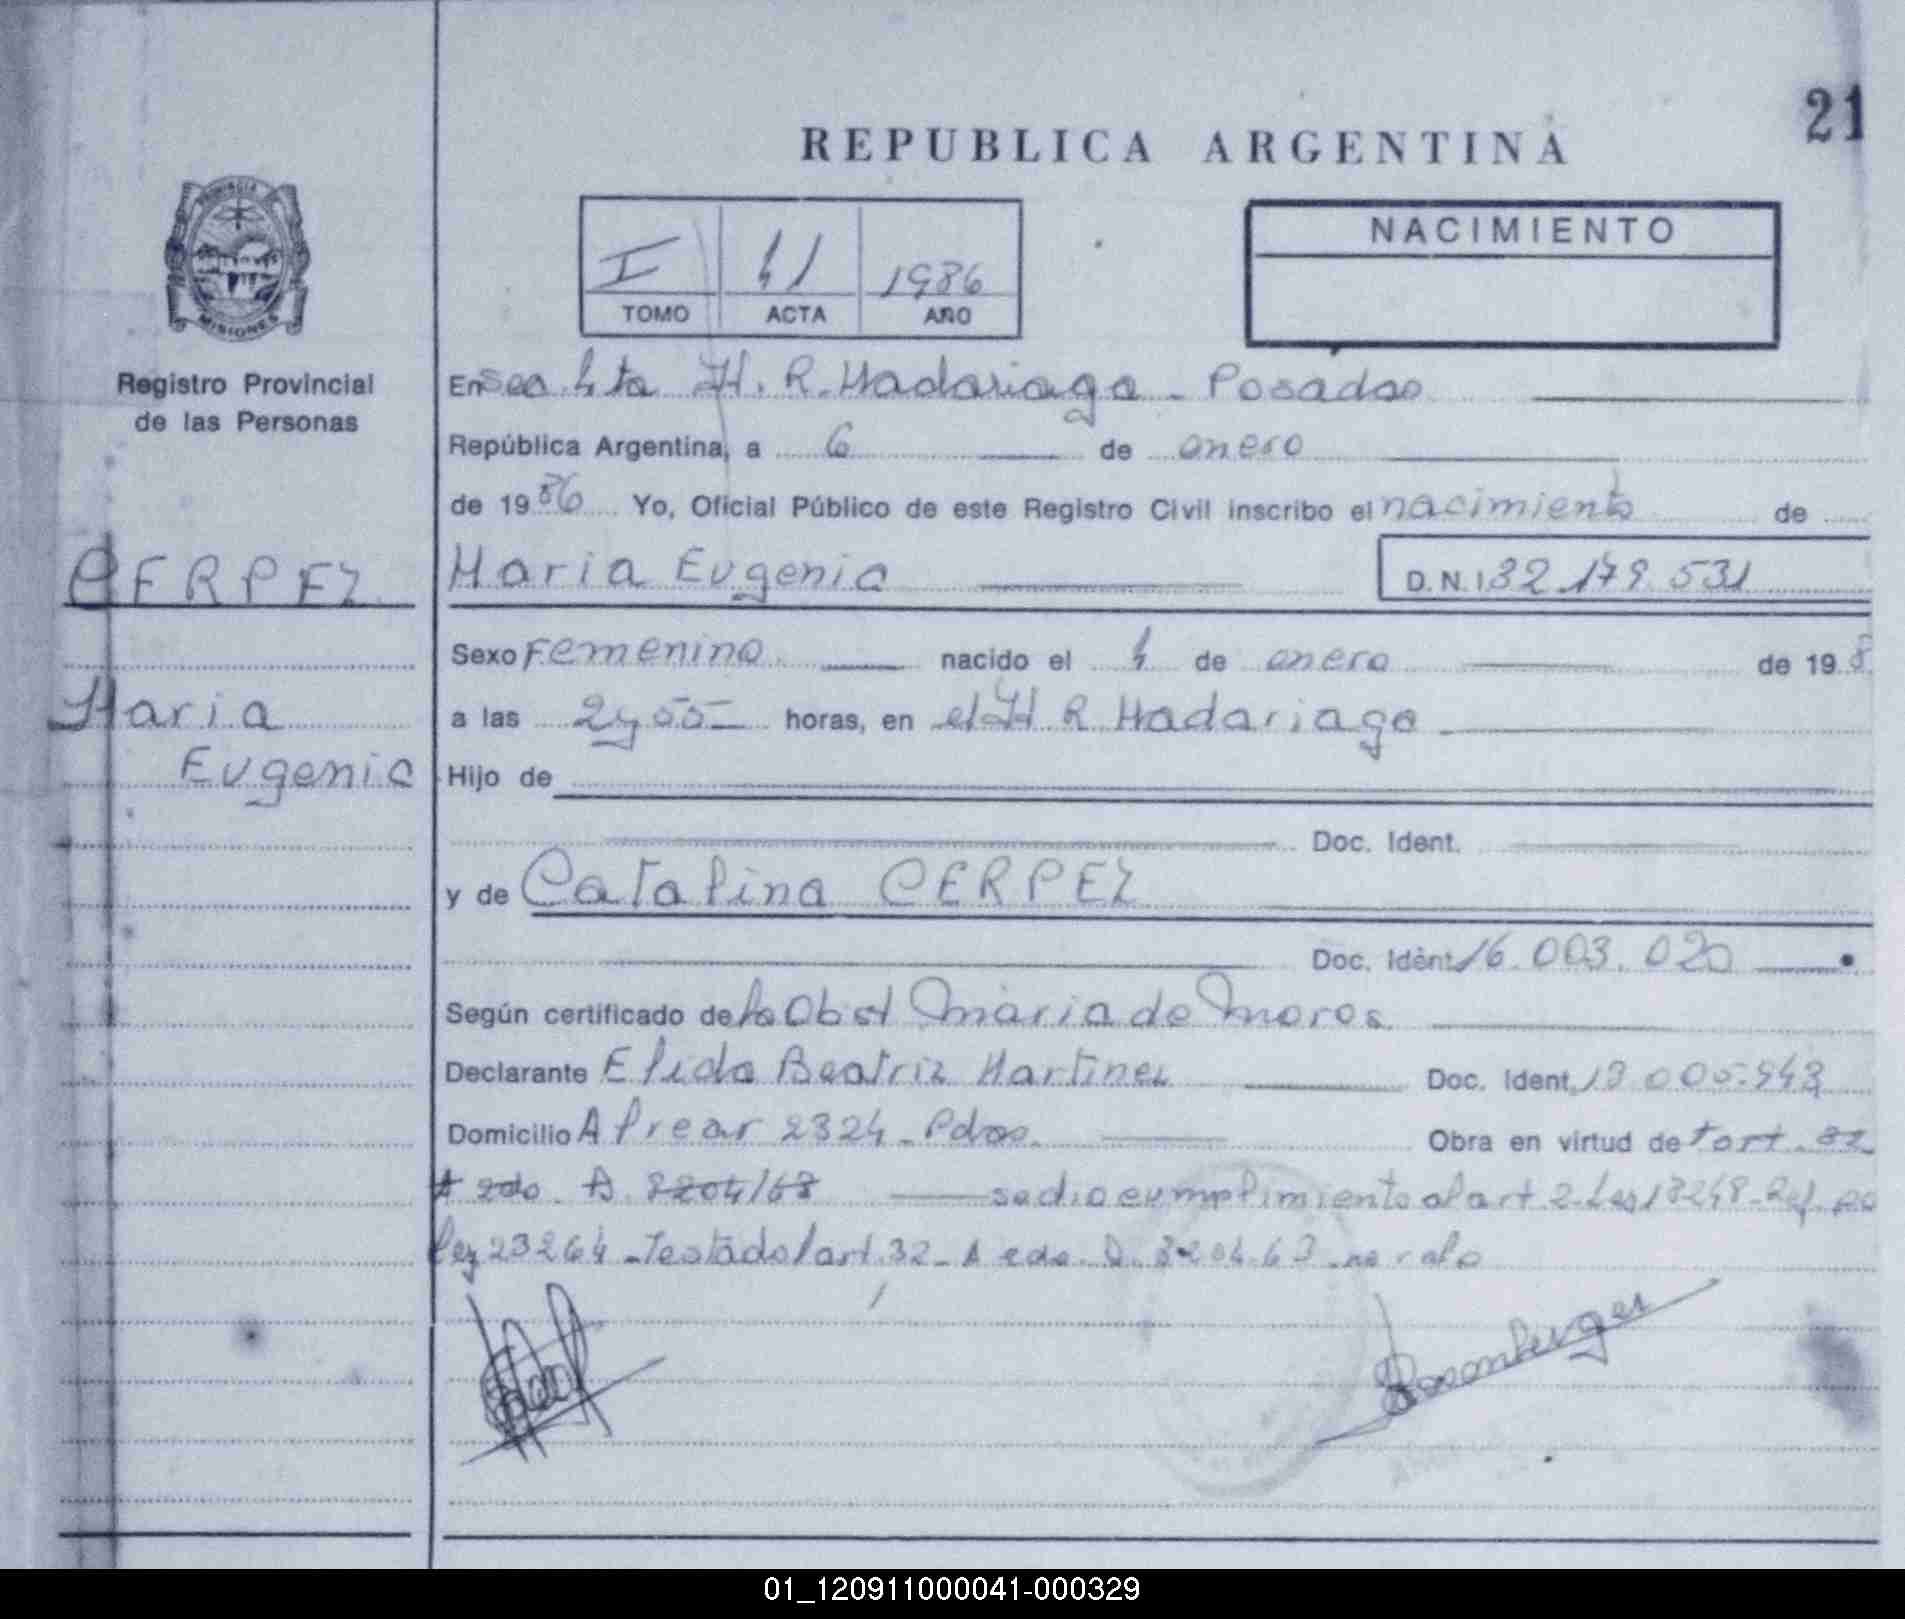 21
REPUBLICA ARGENTINA
NACIMIENTO
I 41 1986
TOMO ACTA AÑO
PROVINCIA
MISIONES
Registro Provincial
de las Personas
En Sec 4ta H. R. Madariaga - Posadas
República Argentina, a 6 de enero
de 1986 Yo, Oficial Público de este Registro Civil inscribo el nacimiento de
CERPEZ
Maria Eugenia D.N.I 32.179.531
Sexo Femenino nacido el 4 de enero de 19 8
Maria
Eugenia
a las 2 y 55 horas, en el H R Madariaga
Hijo de
Doc. Ident.
y de Catalina CERPEZ
Doc. Ident. 16.003.020
Según certificado de la Obst Maria de Moros
Declarante Elida Beatriz Martinez Doc. Ident.
Domicilio Alvear 2324 - Pdas. Obra en virtud de
8204/63 se dio cumplimiento al art. 2 Ley 18248
ley 23264 - Testado/art. 32 - 8204.63 - no vale
01_120911000041-000329